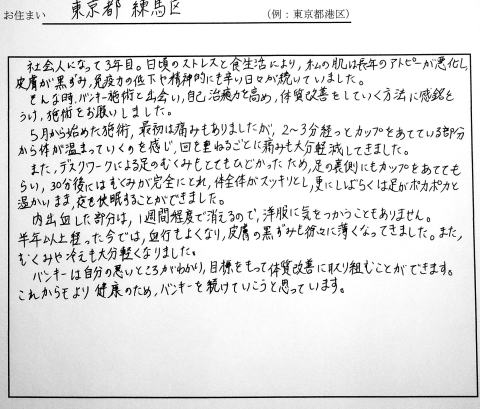 お住まい 東京都 練馬区 （例：東京都港区）
社会人になって3年目。日頃のストレスと食生活により、私の肌は長年のアトピーが悪化し、
皮膚が黒ずみ、免疫力の低下や精神的にも辛い日々が続いていました。
そんな時、バンキー施術と出会い、自己治癒力を高め、体質改善をしていく方法に感銘を
うけ、施術をお願いしました。
5月から始めた施術、最初は痛みもありましたが、2〜3分経つとカップをあてている部分
から体が温まっていくのを感じ、回を重ねるごとに痛みも大分軽減してきました。
また、デスクワークによる足のむくみもとてもひどかったため、足の裏側にもカップをあてても
らい、30分後にはむくみが完全にとれ、体全体がスッキリとし、更にしばらくは足がポカポカと
温かいまま、夜も快眠することができました。
内出血した部分は、1週間程度で消えるので、洋服に気をつかうこともありません。
半年以上経った今では、血行もよくなり、皮膚の黒ずみも徐々に薄くなってきました。また、
むくみや冷えも大分軽くなりました。
バンキーは自分の悪いところがわかり、目標をもって体質改善に取り組むことができます。
これからもより健康のため、バンキーを続けていこうと思っています。